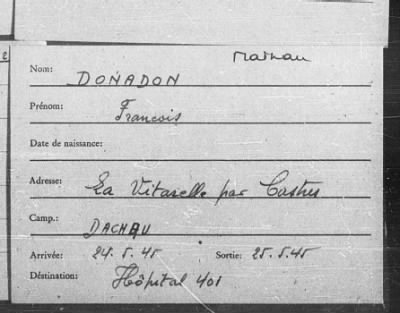 2
Nom: DONADON
Prénom: Francois
Date de naissance:
Adresse: La Vitarelle par Castres
Camp.: DACHAU
Arrivée: 24.5.45 Sortie: 25.5.45
Déstination: Hôpital 401